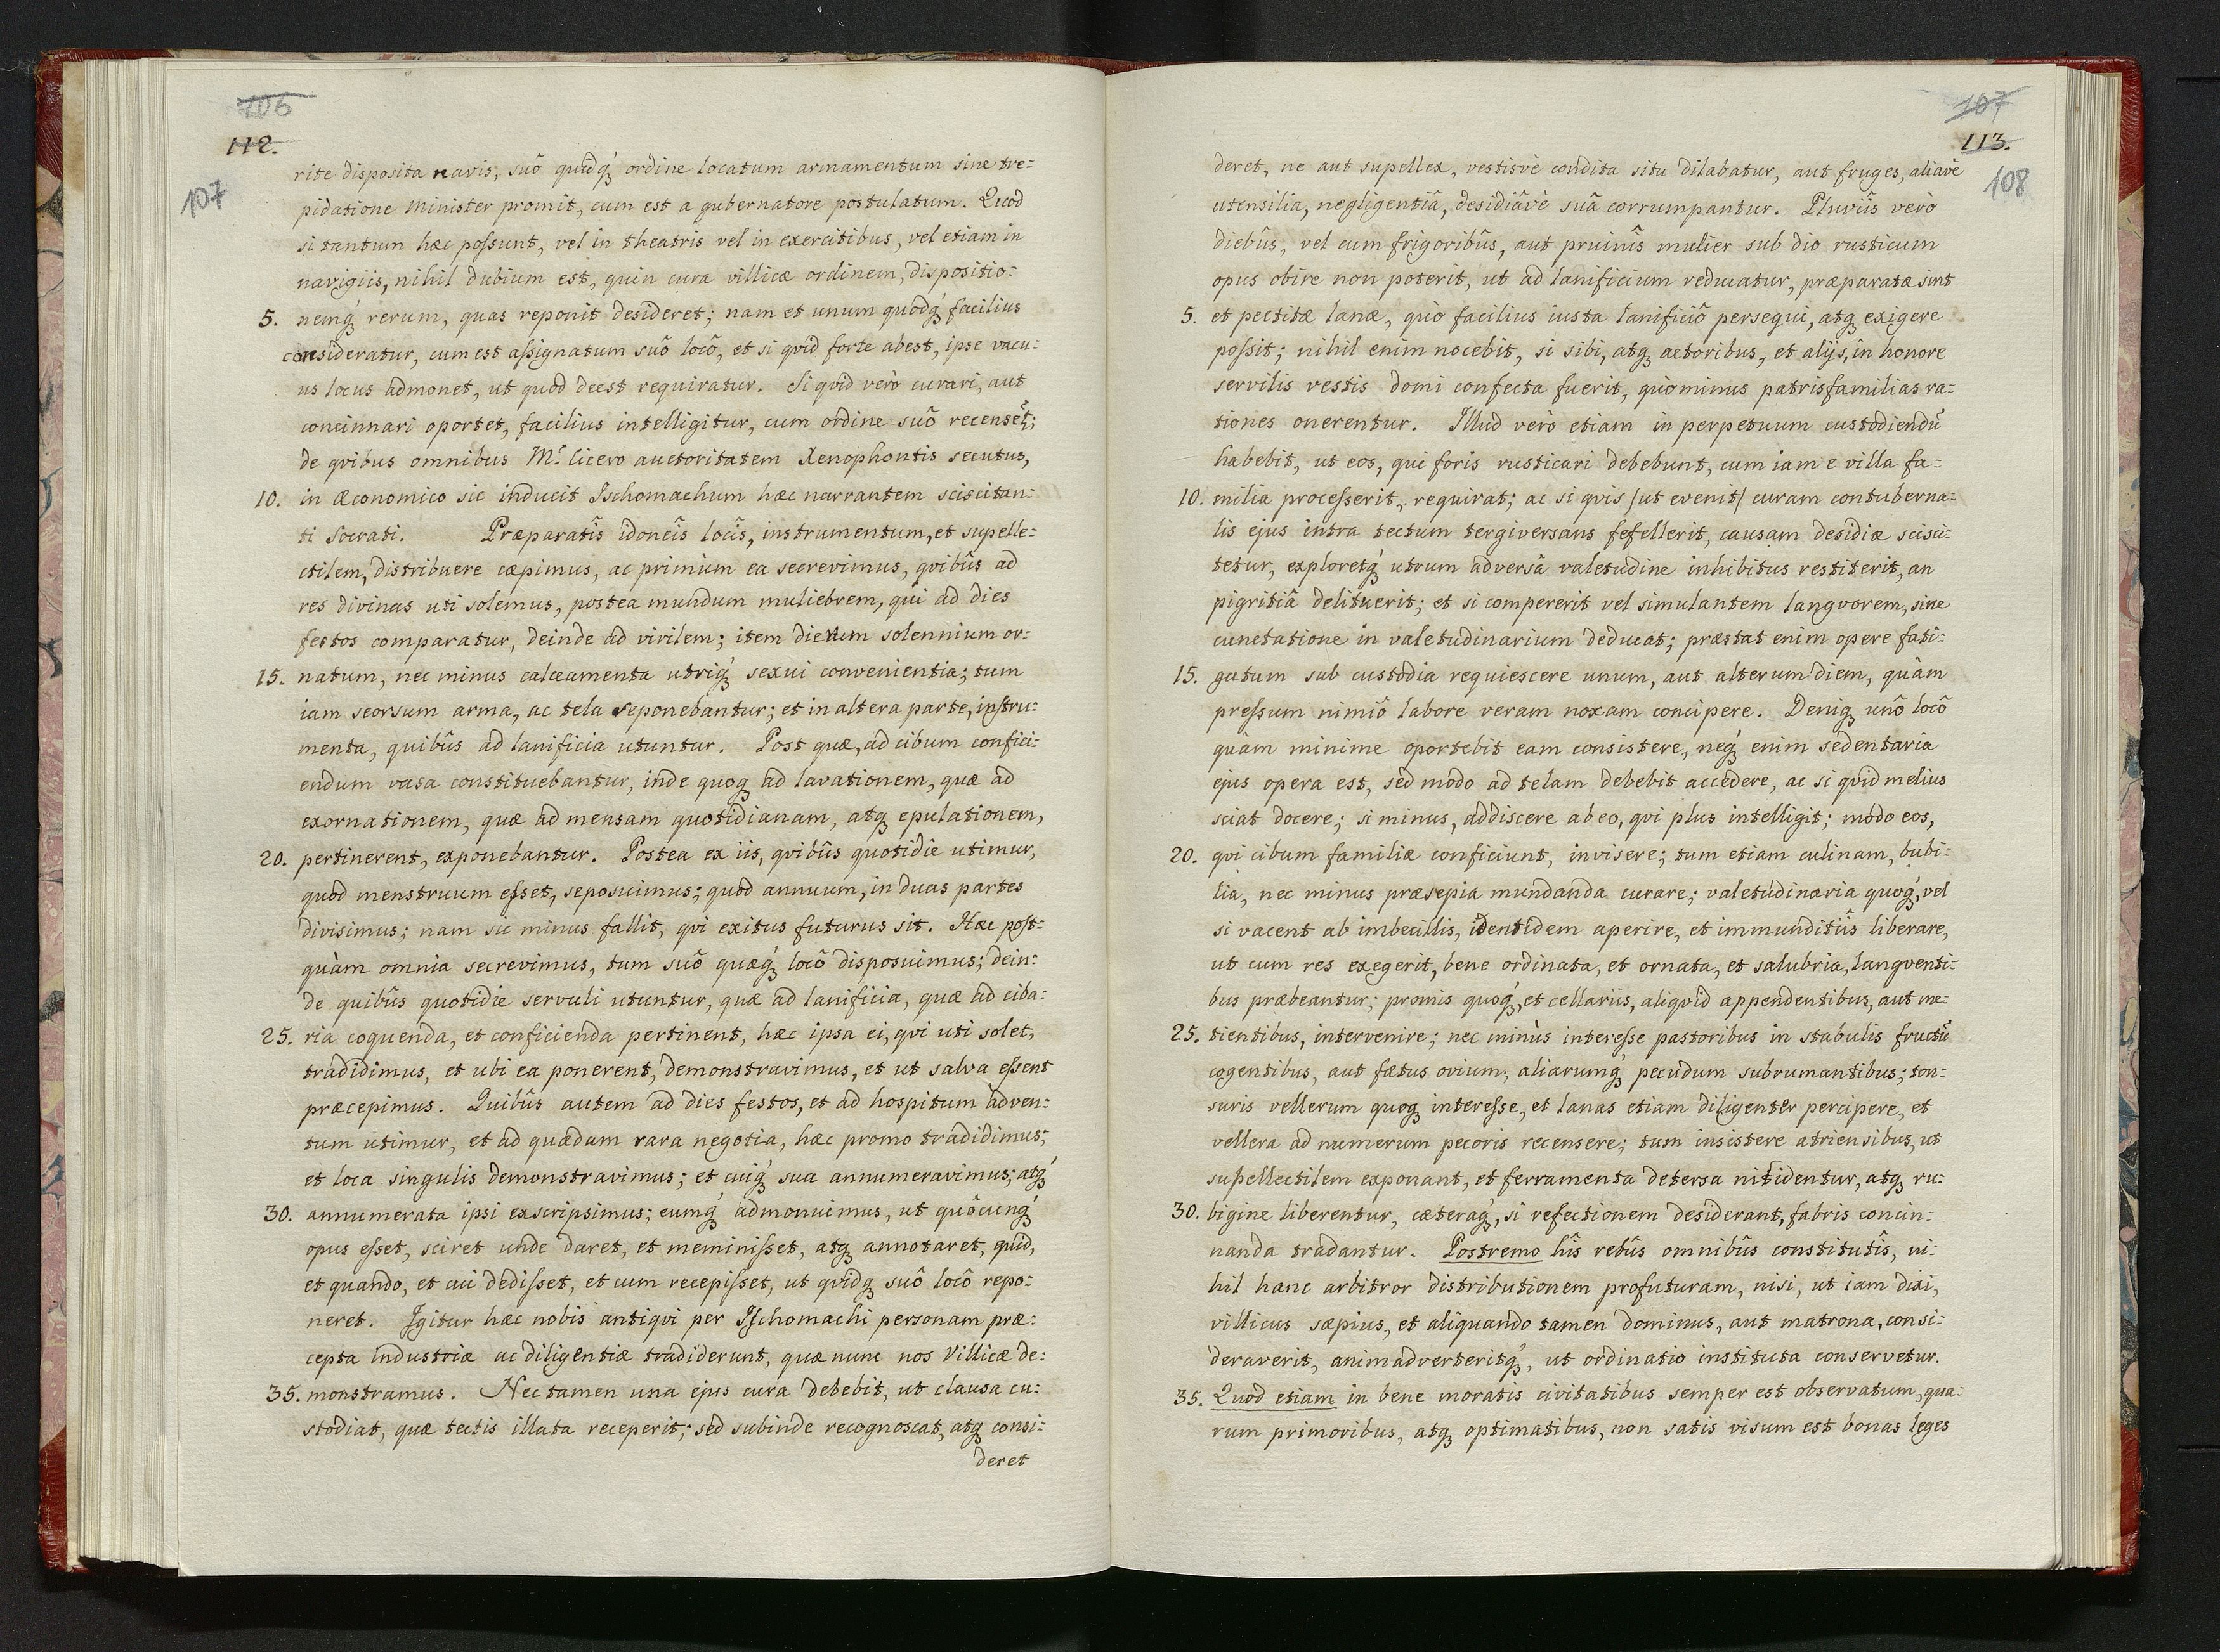 106
112.
107
rite disposita navis, suô quidq́ꝫ ordine locatum armamentum sine tre=
pidatione Minister promit, cum est a gubernatore postulatum. Quod
si tantum hæc poſsunt, vel in theatris vel in exercitibus, vel etiam in
navigiis, nihil dubium est, quin cura villicæ ordinem, dispositio=
5. nemq́ꝫ rerum, quas reponit desideret; nam et unum quodq́ꝫ facilius
consideratur, cum est aſsignatum suô locô, et si qvid forte abest, ipse vacu=
us locus admonet, ut quod deest requiratur. Si qvid verò curari, aut
concinnari oportet, facilius intelligitur, cum ordine suô recenset̃;
de qvibus omnibus M. Cicero auctoritatem Xenophontis secutus,
10. in œconomico sic inducit Ischomachum hæc narrantem sciscitan=
ti Socrati. Præparatîs idoneîs locîs, instrumentum, et supelle=
ctilem, distribuere cæpimus, ac primùm ea secrevimus, qvibûs ad
res divinas uti solemus, postea mundum muliebrem, qui ad dies
festos comparatur, deinde ad virilem; item dierum solennium or=
15. natum, nec minus calceamenta utriq́ꝫ sexui convenientia; tum
iam seorsum arma, ac tela seponebantur; et in altera parte, inſtru=
menta, quibûs ad lanificia utuntur. Post quæ, ad cibum confici=
endum vasa constituebantur, inde quoqꝫ ad lavationem, quæ ad
exornationem, quæ ad mensam quotidianam, atqꝫ epulationem,
20. pertinerent, exponebantur. Postea ex iis, qvibûs quotidie utimur,
quod menstruum eſset, seposuimus; quod annuum, in duas partes
divisimus; nam sic minus fallit, qvi exitus futurus sit. Hæc poſt=
quàm omnia secrevimus, tum suô quæq́ꝫ locô disposuimus; dein=
de quibûs quotidie servuli utuntur, quæ ad lanificia, quæ ad ciba=
25. ria coquenda, et conficienda pertinent, hæc ipsa ei, qvi uti solet,
tradidimus, et ubi ea ponerent, demonstravimus, et ut salva eſsent
præcepimus. Quibûs autem ad dies festos, et ad hospitum adven=
tum utimur, et ad quædam rara negotia, hæc promo tradidimus;
et loca singulis demonstravimus; et cuiq́ꝫ sua annumeravimus; atq́ꝫ
30. annumerata ipsi exscripsimus; eumq́ꝫ admonuimus, ut quôcunq́ꝫ
opus eſset, sciret unde daret, et meminiſset, atqꝫ annotaret, quid,
et quando, et cui dediſset, et cum recepiſset, ut qvidqꝫ suô locô repo=
neret. Igitur hæc nobis antiqvi per Iſchomachi personam præ=
cepta industriæ ac diligentiæ tradiderunt, quæ nunc nos Villicæ de=
35. monstramus. Nec tamen una ejus cura debebit, ut clausa cu=
stodiat, quæ tectis illata receperit; sed subinde recognoscat, atqꝫ consi=
deret
107
113.
108
deret, ne aut supellex, vestisvè condita situ dilabatur, aut fruges, aliavè
utensilia, negligentiâ, desidiâvè suâ corrumpantur. Pluviîs verò
diebûs, vel cum frigoribûs, aut pruinîs mulier sub dio rusticum
opus obire non poterit, ut ad lanificium reducatur, præparatæ sint
5. et pectitæ lanæ, quò facilius iusta lanificiô persequi, atqꝫ exigere
poſsit; nihil enim nocebit, si sibi, atqꝫ actoribus, et alijs, in honore
servilis vestis domi confecta fuerit, quòminus patrisfamilias ra=
tiones onerentur. Illud verò etiam in perpetuum custodiendũ
habebit, ut eos, qui foris rusticari debebunt, cum iam e villa fa=
10. milia proceſserit, requirat; ac si qvis /ut evenit/ curam contuberna=
lis ejus intra tectum tergiversans fefellerit, causam desidiæ scisci=
tetur, exploretq́ꝫ utrum adversâ valetudine inhibitus restiterit, an
pigritiâ delituerit; et si compererit vel simulantem langvorem, sine
cunctatione in valetudinarium deducat; præstat enim opere fati=
15. gatum sub custodia requiescere unum, aut alterum diem, quàm
preſsum nimiô labore veram noxam concipere. Deniqꝫ unô locô
quàm minime oportebit eam consistere, neq́ꝫ enim sedentaria
ejus opera est, sed modo ad telam debebit accedere, ac si qvid melius
sciat docere; si minus, addiscere ab eo, qvi plus intelligit; modo eos,
20. qvi cibum familiæ conficiunt, invisere; tum etiam culinam, bubi=
lia, nec minus præsepia mundanda curare; valetudinaria quoq́ꝫ, vel
si vacent ab imbecillis, identidem aperire, et immunditiîs liberare,
ut cum res exegerit, bene ordinata, et ornata, et salubria, langventi=
bus præbeantur; promis quoq́ꝫ, et cellariis, aliqvid appendentibus, aut me=
25. tientibus, intervenire; nec minùs intereſse pastoribus in stabulis fructũ
cogentibus, aut fœtus ovium, aliarumq́ꝫ pecudum subrumantibus; ton=
suris vellerum quoqꝫ intereſse, et lanas etiam diligenter percipere, et
vellera ad numerum pecoris recensere; tum insistere atriensibus, ut
supellectilem exponant, et ferramenta detersa nitidentur, atqꝫ ru=
30. bigine liberentur, cæteraq́ꝫ, si refectionem desiderant, fabris concin=
nanda tradantur. Postremo hîs rebûs omnibûs constitutîs, ni=
hil hanc arbitror distributionem profuturam, nisi, ut iam dixi,
villicus sæpius, et aliquando tamen dominus, aut matrona, consi=
deraverit, animadverteritq́ꝫ, ut ordinatio instituta conservetur.
35. Quod etiam in bene moratis civitatibus semper est observatum, qua=
rum primoribus, atqꝫ optimatibus, non satis visum est bonas leges